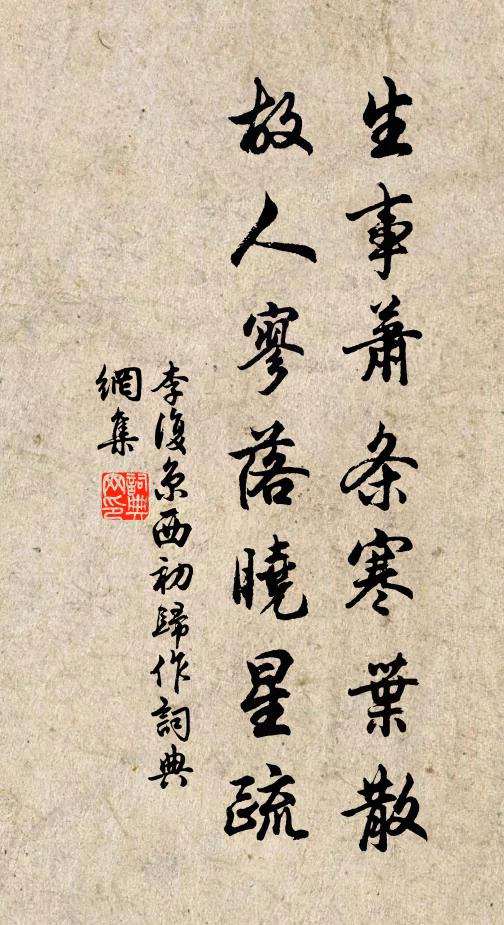 生事蕭条寒葉散
故人寥落曉星疏
李復京西初歸作詞典
網集
詞典網印